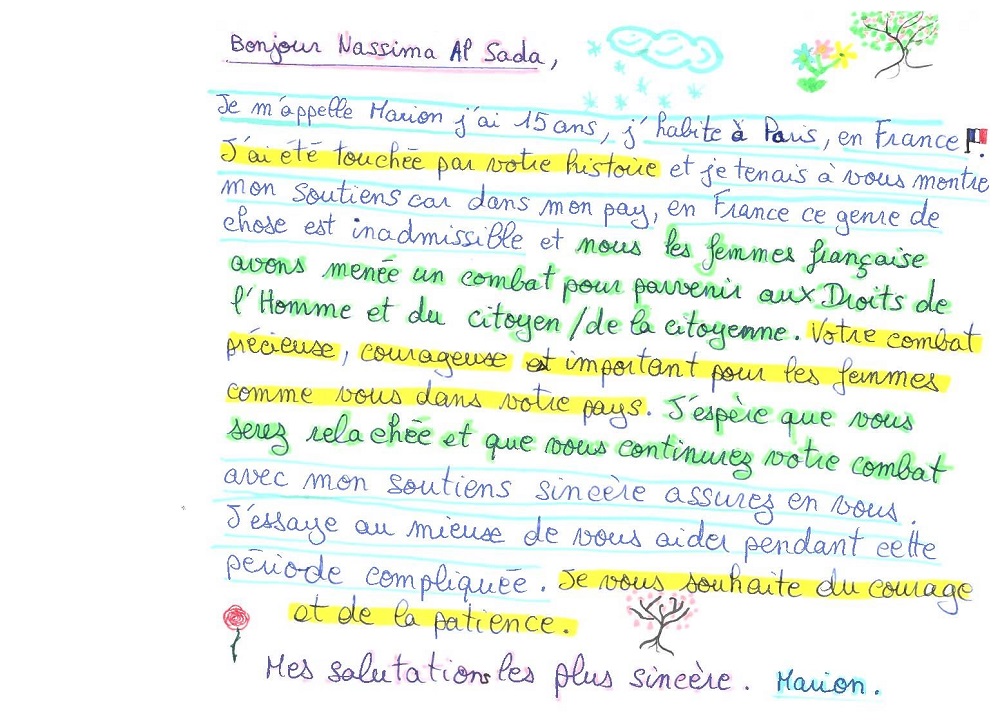 Bonjour Nassima Al Sada,
Je m'appelle Marion j'ai 15 ans, j'habite à Paris, en France.
J'ai été touchée par votre histoire et je tenais à vous montre
mon soutiens car dans mon pay, en France ce genre de
chose est inadmissible et nous les femmes française
avons menée un combat pour parvenir aux Droits de
l'Homme et du citoyen /de la citoyenne. Votre combat
précieuse, courageuse est important pour les femmes
comme vous dans votre pays. J'espère que vous
serez relachée et que vous continurez votre combat
avec mon soutiens sincère assurez en vous.
J'essaye au mieuse de vous aider pendant cette
période compliquée. Je vous souhaite du courage
et de la patience.
Mes salutations les plus sincère. Marion.